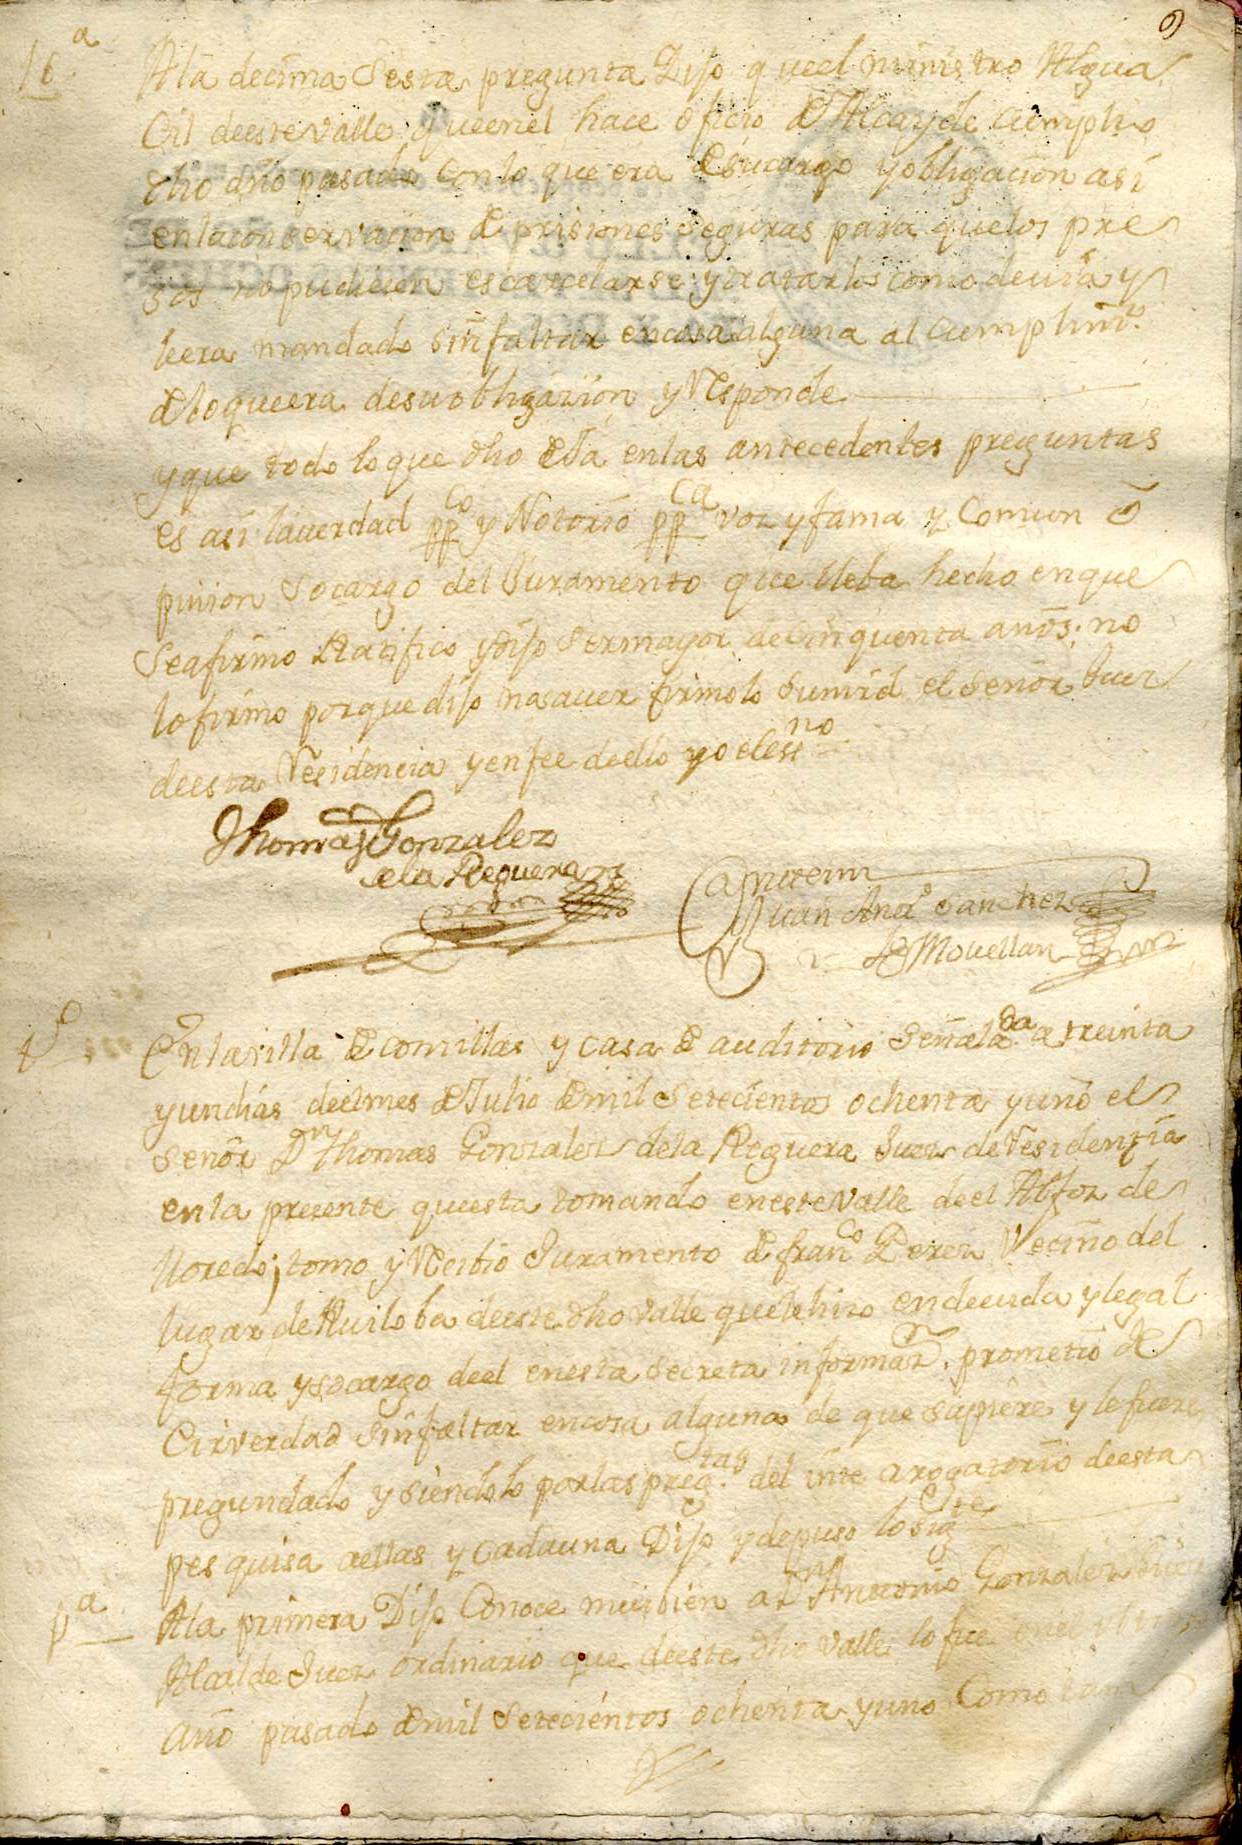 9
16.ª
Ala decima Sesta pregunta Dijo queel ministro Algua
Cil deestevalle queenel hace oficio dAlcayde Cumplio
dho año pasado con lo que era desucargo yobligacion asi
enlaconservacion de prisiones seguras para quelos pre
sos no pudiesen escarcelarse ytratarlos como devia y
leera mandado Sinfaltar encosaalguna al Cumplimto.
dloqueera desuobligazion y Responde
yque todo loque dho dJa enlas antecedentes preguntas
es asi laverdad ppco y Notorio ppca voz yfama y Comun o
pinion Socargo del Juramento que lleba hecho enque
Seafirmo Ratifico ydijo Sermayor decinquenta años; no
lofirmo porque dijo nosaver firmolo Sumrd el Señor Juez
deesta Residencia yenfee deello yo elessno
Thomas Gonzalez
dela Reguera
Antemi
Juan Anto Sanchez
de Movellan
Enlavilla de Comillas y casa de auditorio Señalada a treinta
yundias deelmes dJulio demil Setecientos ochenta yuno el
Señor Dn Thomas Gonzalez dela Reguera Juez de Residenzia
enla presente queesta tomando enestevalle deel Alfoz de
lloredo; tomo y Recibio Juramento de franco Perez Vecino del
lugar de Ruiloba deeste dho valle quelehizo endeuida ylegal
forma ysocargo deel enesta secreta informazn. prometio de
Cirverdad sinfaltar encosa alguna de que supiere y lefuere
pregundado y siendolo porlaspregtas. del inte arogatorio deesta
pesquisa aellas y cadauna Dijo ydepuso losigte
pª
Ala primera Dijo Conoce muibien aDn Antonio Gonzalez
Alcalde Juez ordinario que deeste dho valle lo fue enel ultimo
año pasado demil Setecientos ochenta yuno Como